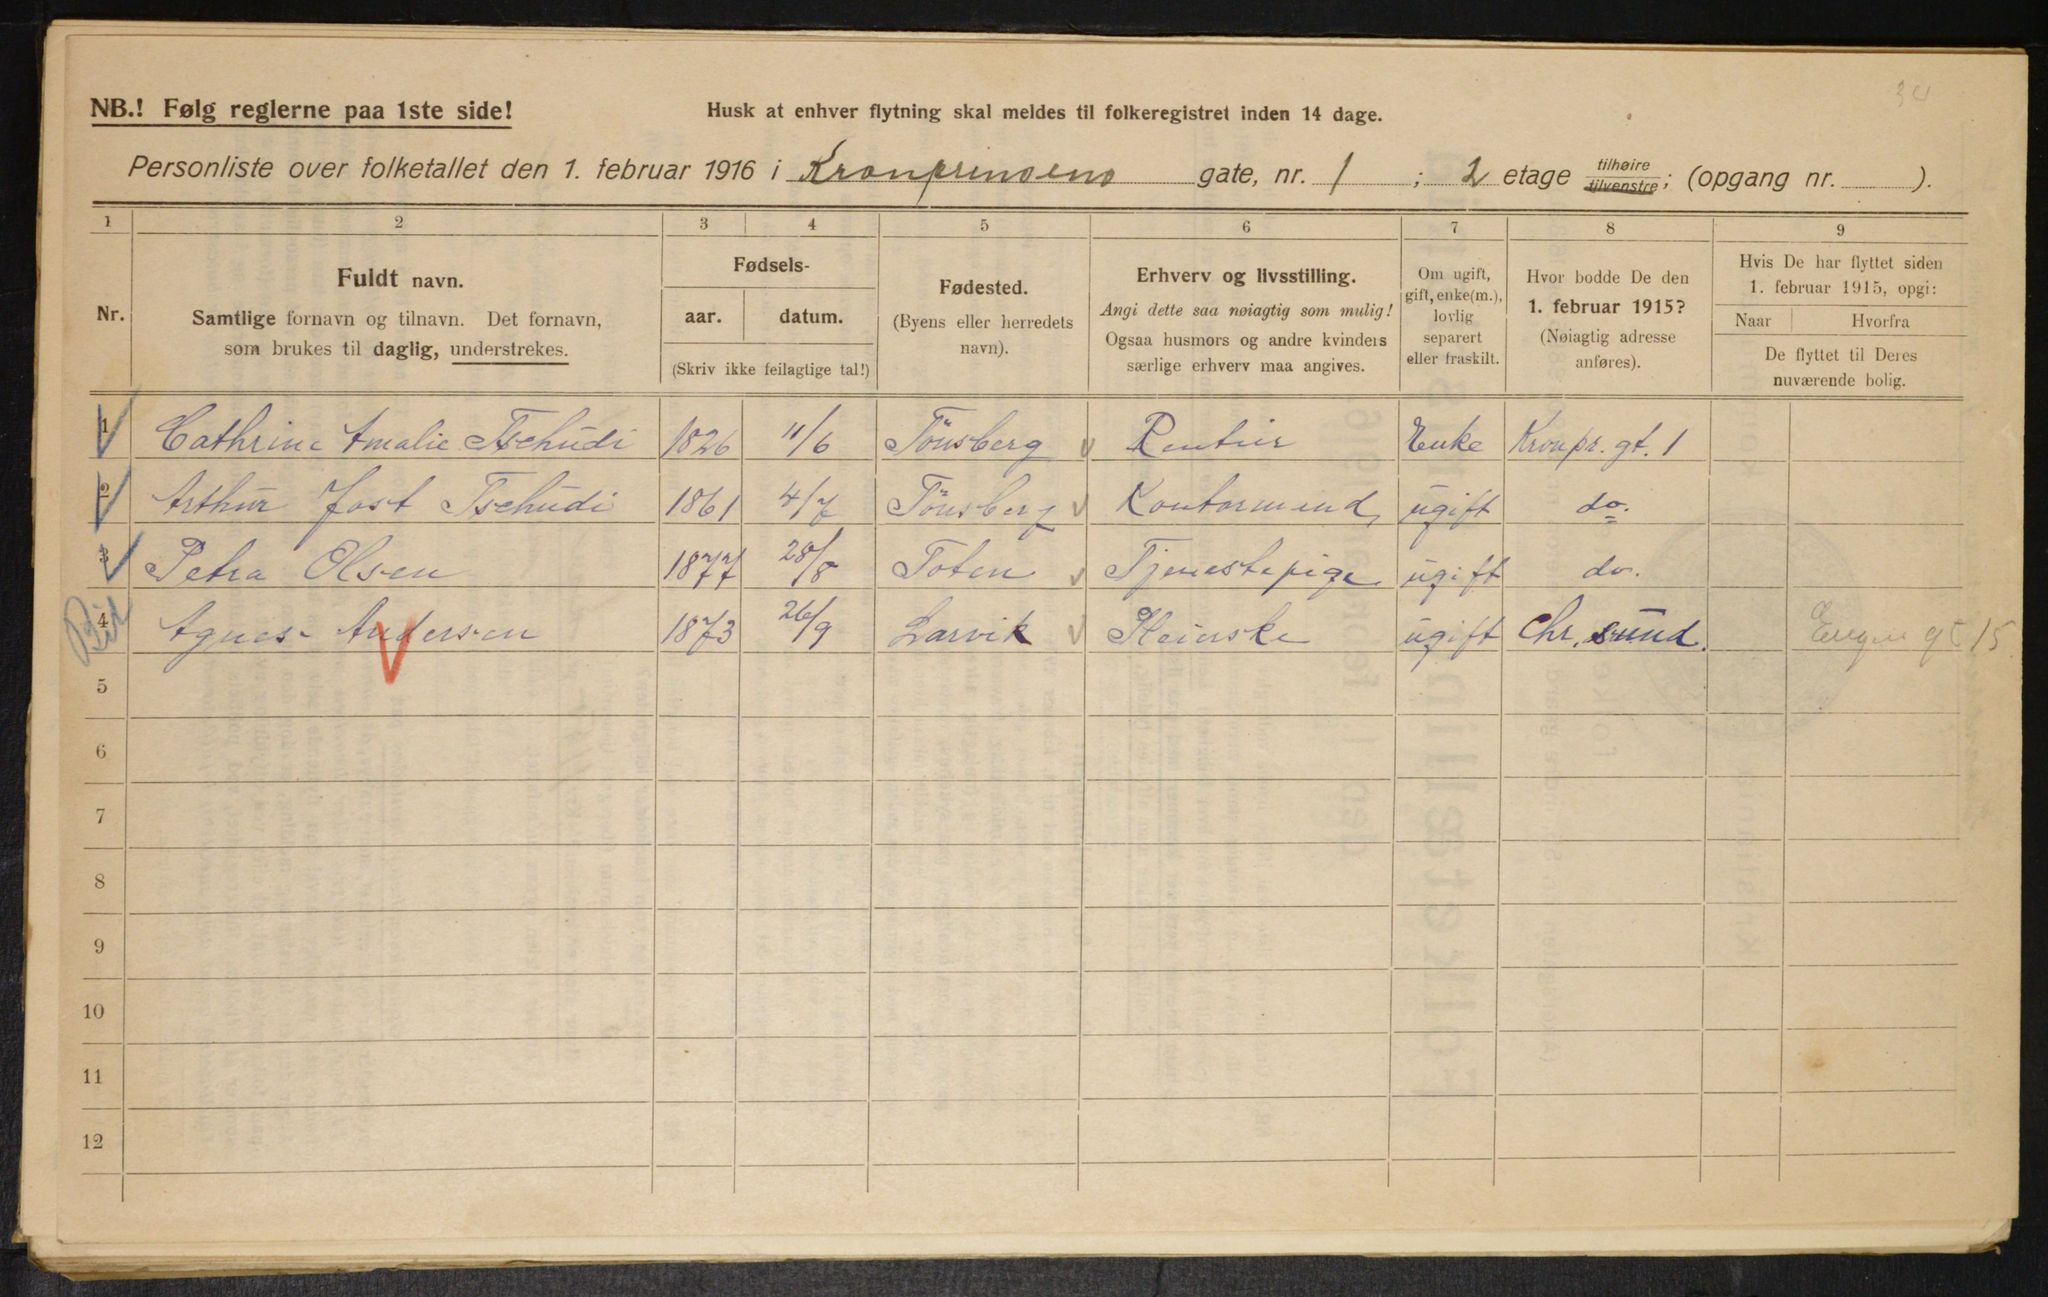 NB.! Følg reglerne paa 1ste side!
Husk at enhver flytning skal meldes til folkeregistret inden 14 dage.
Personliste over folketallet den 1. februar 1916 i Kronprinsens gate, nr. 1 ; 2 etage tilhøire tilvenstre; (opgang nr. ).
1 2 3 4 5 6 7 8 9
Nr.
Fuldt navn.
Samtlige fornavn og tilnavn. Det fornavn,
som brukes til daglig, understrekes.
Fødsels-
aar. datum.
(Skriv ikke feilagtige tal!)
Fødested.
(Byens eller herredets
navn).
Erhverv og livsstilling.
Angi dette saa nøiagtig som mulig!
Ogsaa husmors og andre kvinders
særlige erhverv maa angives.
Om ugift,
gift, enke(m.),
lovlig
separert
eller fraskilt.
Hvor bodde De den
1. februar 1915?
(Nøiagtig adresse
anføres).
Hvis De har flyttet siden
1. februar 1915, opgi:
Naar Hvorfra
De flyttet til Deres
nuværende bolig.
1 Cathrine Amalie Tschüdi 1826 11/6 Tönsberg Rentier Enke Kronpr. gt. 1
2 Arthur Jost Tschüdi 1861 4/7 Tönsberg Kontormand ugift do.
3 Petra Olsen 1877 28/8 Toten Tjenestepige ugift do.
4 Agnes Andersen 1873 26/9 Larvik Pleierske ugift Chr. sund. gt 15
5
6
7
8
9
10
11
12